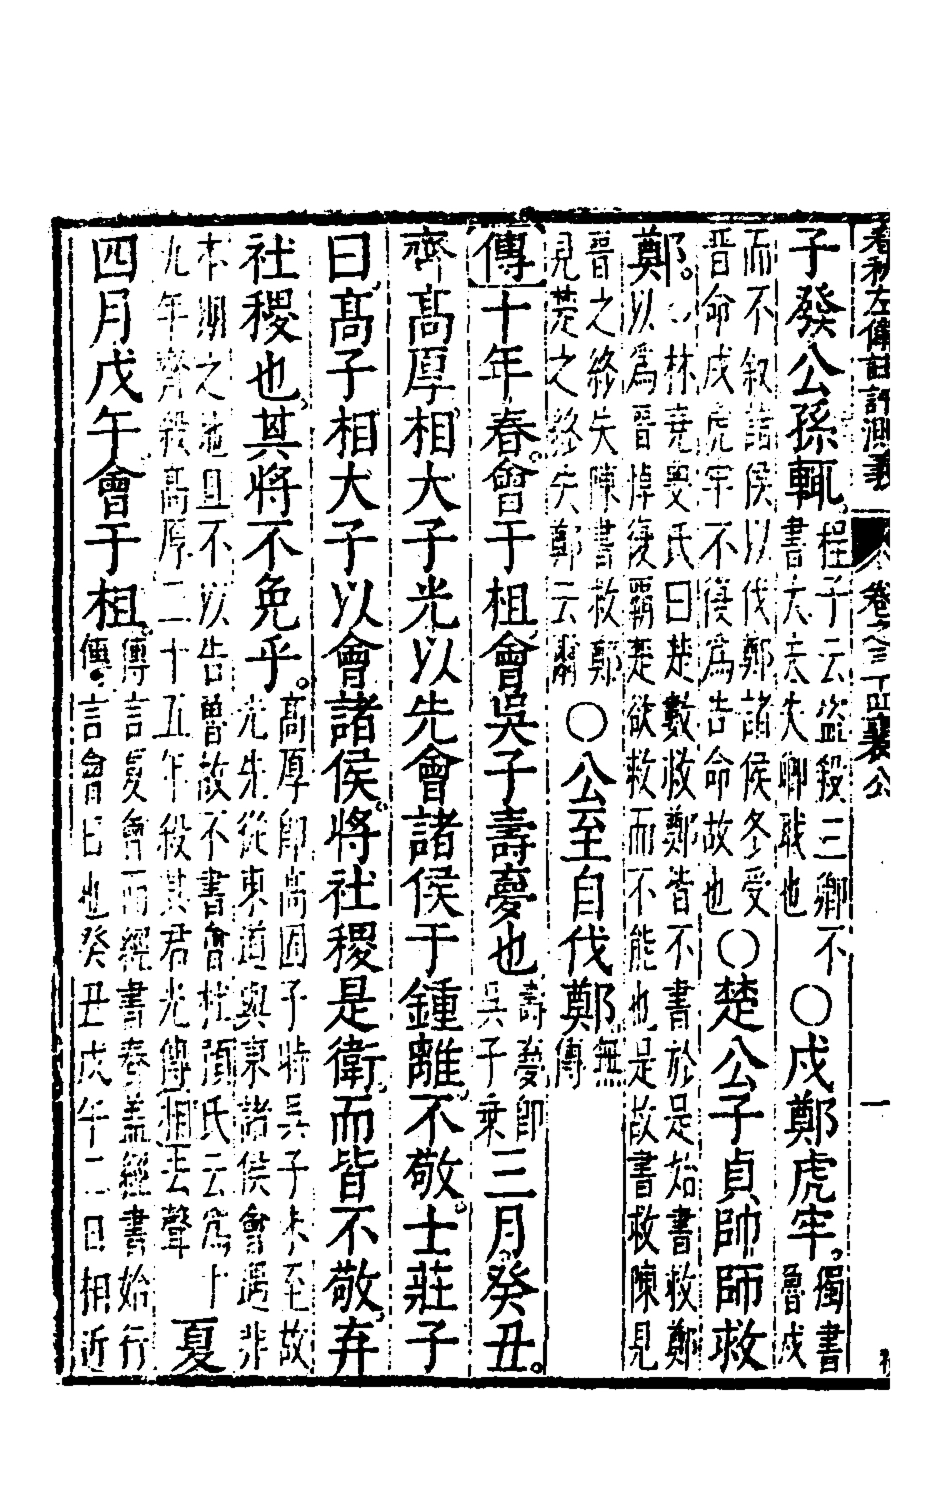 春秋左傳註評測義 卷之三十四襄公 一
子發公孫輒程子云盜殺三卿不
書大夫失卿職也○戍鄭虎牢獨書
魯戍
而不叙諸侯以伐鄭諸侯冬受
晉命戍虎牢不復為告命故也○楚公子貞帥師救
鄭林堯叟氏曰楚數救鄭皆不書於是始書救鄭
以為晉悼復霸楚欲救而不能也是故書救陳見
晉之終失陳書救鄭
見楚之終失鄭云爾○公至自伐鄭無
傳
傳十年春會于柤會吳子壽夢也壽夢卽
吳子乘三月癸丑
齊高厚相大子光以先會諸侯于鍾離不敬士莊子
曰高子相大子以會諸侯將社稷是衛而皆不敬弃
社稷也其將不免乎高厚卽高固子時吳子未至故
光先從東道與東諸侯會遇非
本期之地且不以告魯故不書會杜預氏云為十
九年齊殺高厚二十五年殺其君光傳相去聲 夏
四月戊午會于柤傳言夏會而經書春蓋經書始行
傳言會日也癸丑戊午二日相近